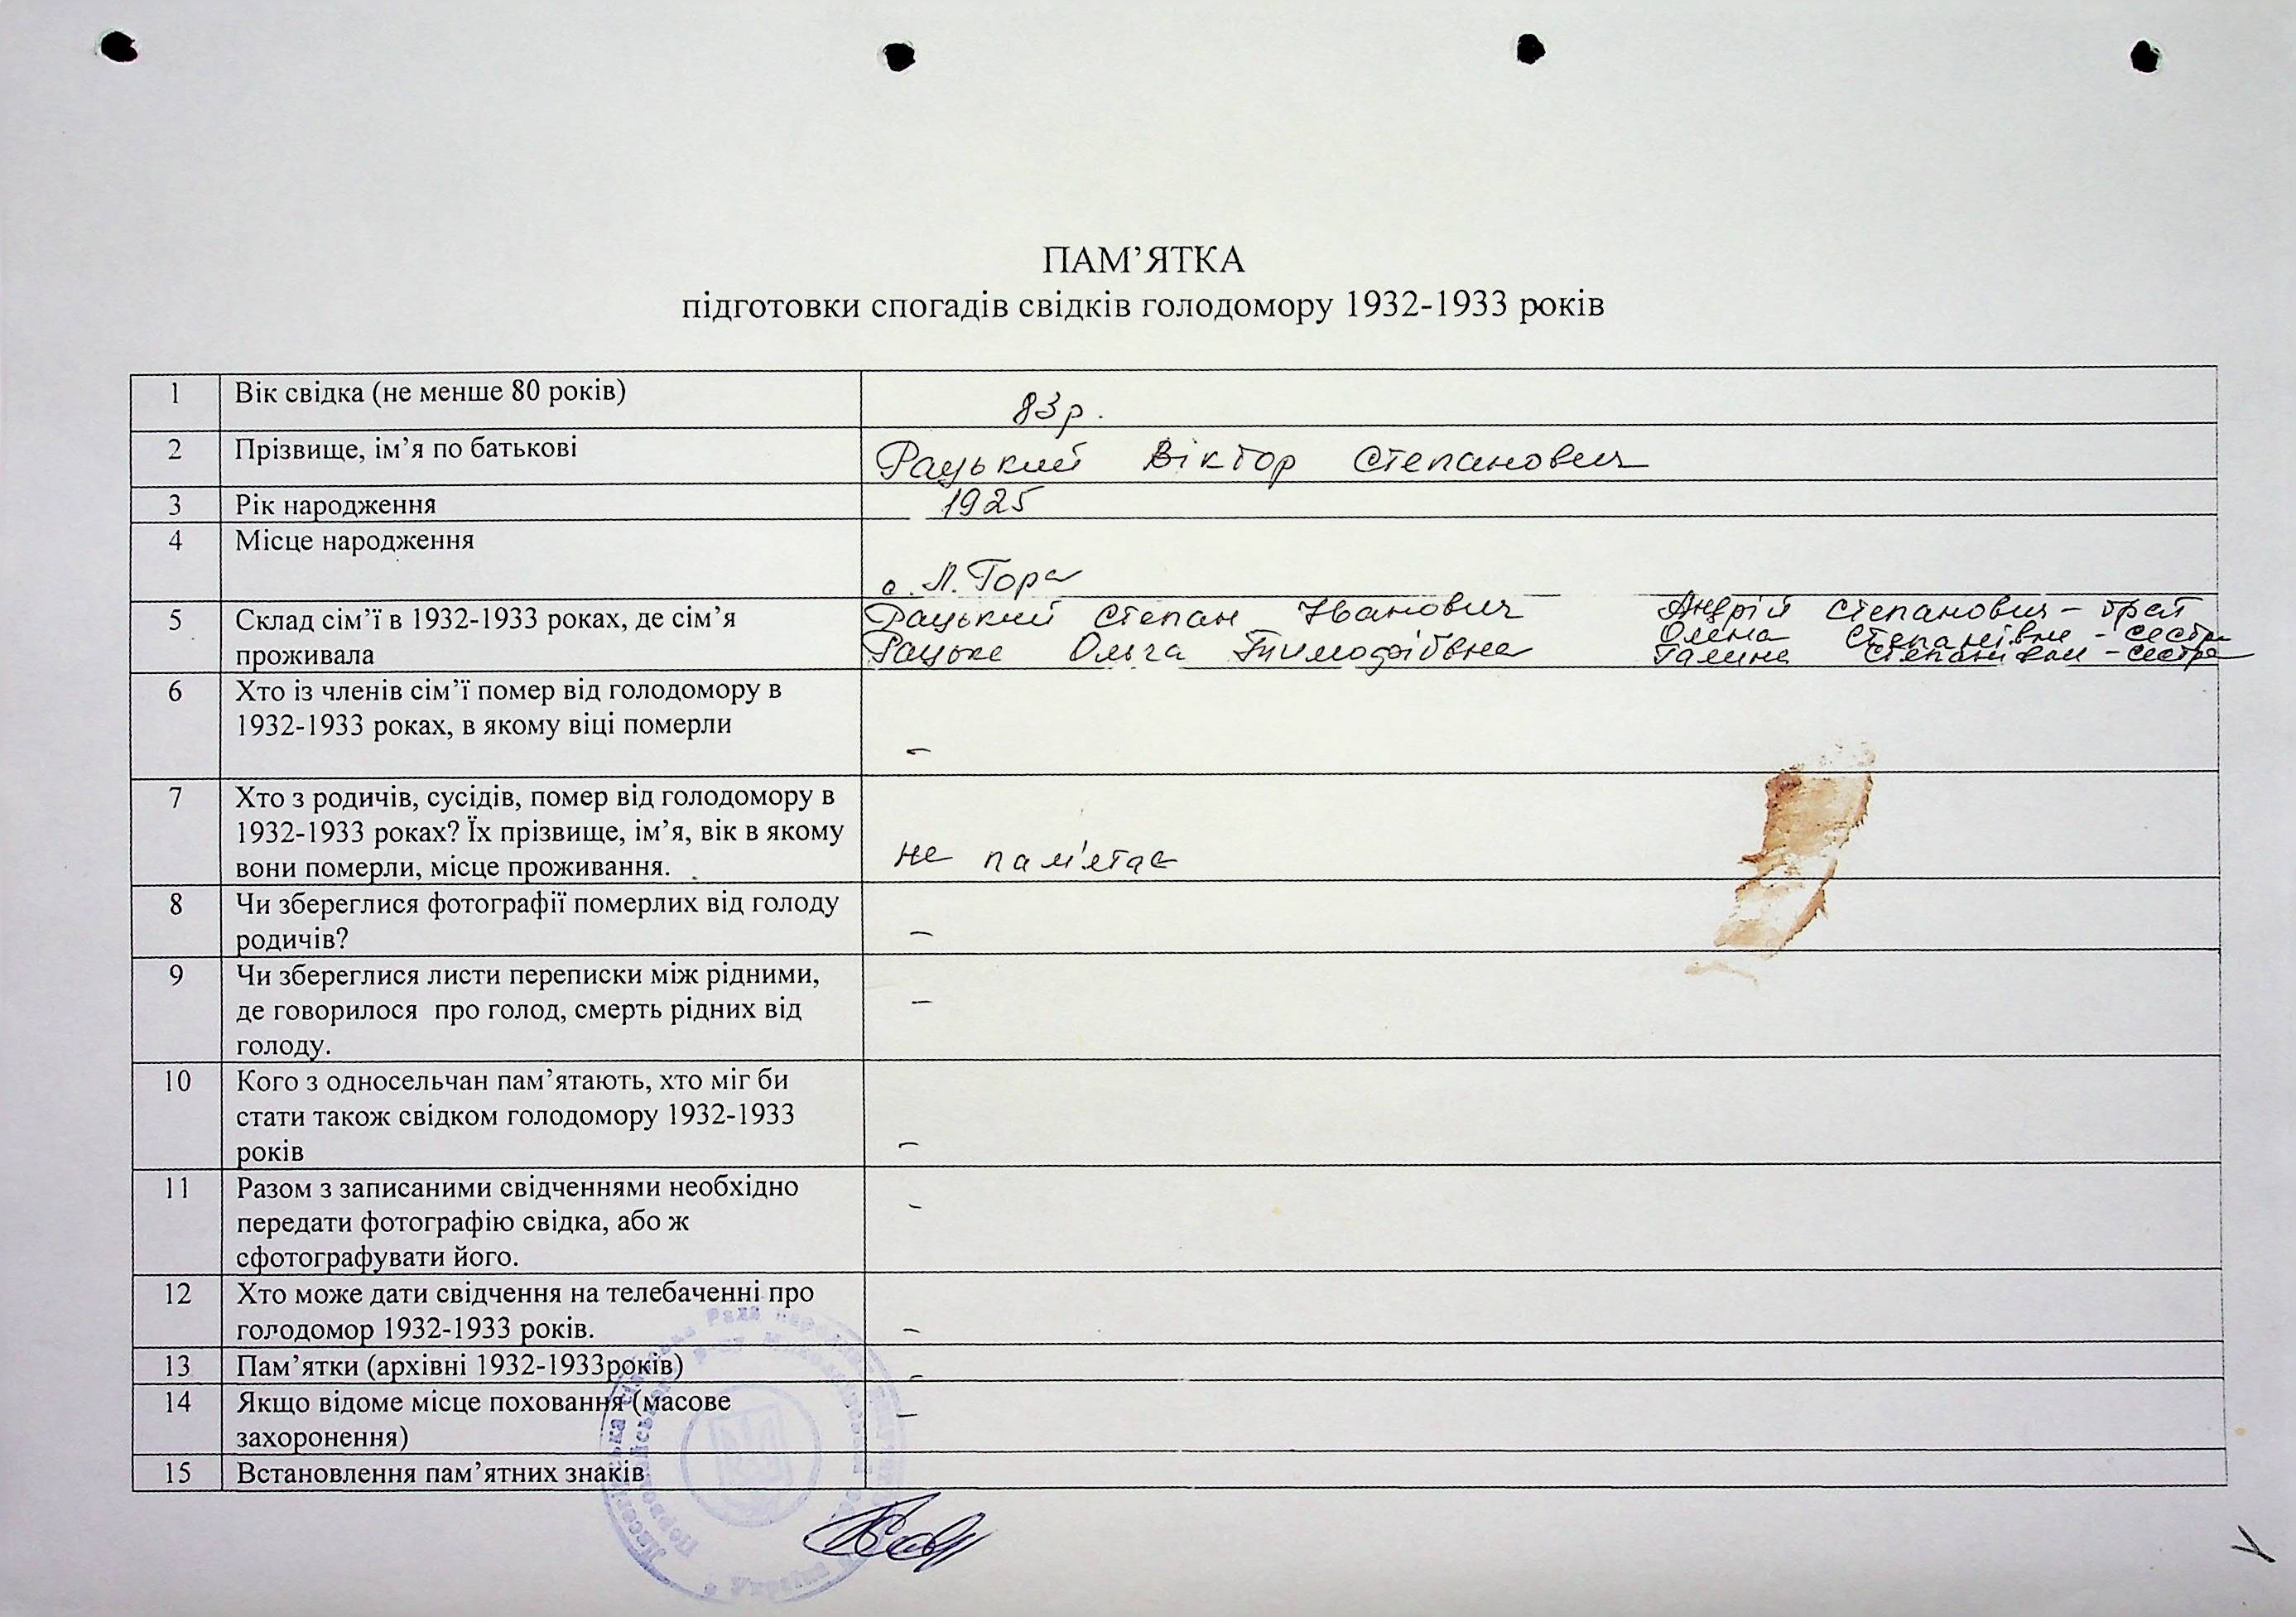 ПАМ’ЯТКА
підготовки спогадів свідків голодомору 1932-1933 років
1 Вік свідка (не менше 80 років) 83 р.
2 Прізвище, ім’я по батькові Рацький Віктор Степанович
3 Рік народження 1925
4 Місце народження
с. Л. Гора
5 Склад сім’ї в 1932-1933 роках, де сім’я Рацький Степан Іванович Андрій Степанович - брат
Олена Степанівна - сестра
проживала Рацька Ольга Тимофіївна Галина Степанівна - сестра
6 Хто із членів сім’ї помер від голодомору в
1932-1933 роках, в якому віці померли
–
7 Хто з родичів, сусідів, помер від голодомору в
1932-1933 роках? Їх прізвище, ім’я, вік в якому
вони померли, місце проживання. не пам'ятає
8 Чи збереглися фотографії померлих від голоду
родичів? –
9 Чи збереглися листи переписки між рідними,
де говорилося про голод, смерть рідних від –
голоду.
10 Кого з односельчан пам’ятають, хто міг би
стати також свідком голодомору 1932-1933
років –
11 Разом з записаними свідченнями необхідно
передати фотографію свідка, або ж –
сфотографувати його.
12 Хто може дати свідчення на телебаченні про
голодомор 1932-1933 років. –
13 Пам’ятки (архівні 1932-1933років) –
14 Якщо відоме місце поховання (масове –
захоронення)
15 Встановлення пам’ятних знаків
Україна